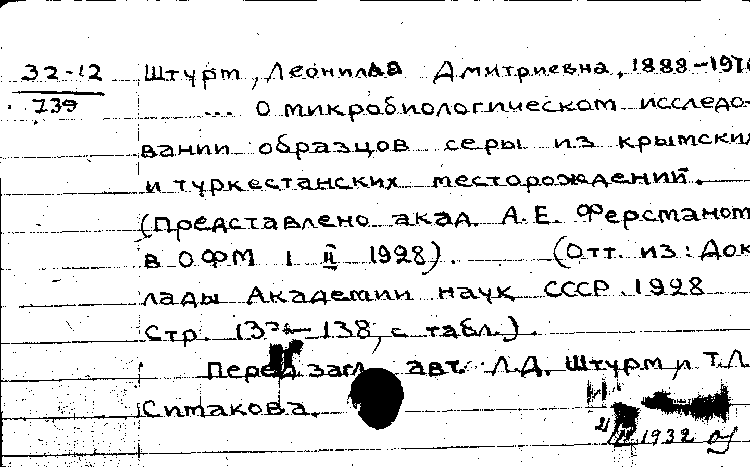 32-12 Штурм, Леонилла Дмитриевна, 1888-197
739 ... О микробиологическом исследо-
вании образцов серы из крымски
и туркестанских месторождений.
(Представлено акад. А.Е. Ферсманом
в ОФМ 1 II 1928). (Отт. из: Док
лады Академии наук СССР. 1928
Стр. 138, с табл.).
Перед загл. авт. Л.Д. Штурм, Т.Л.
Ситакова.
1932